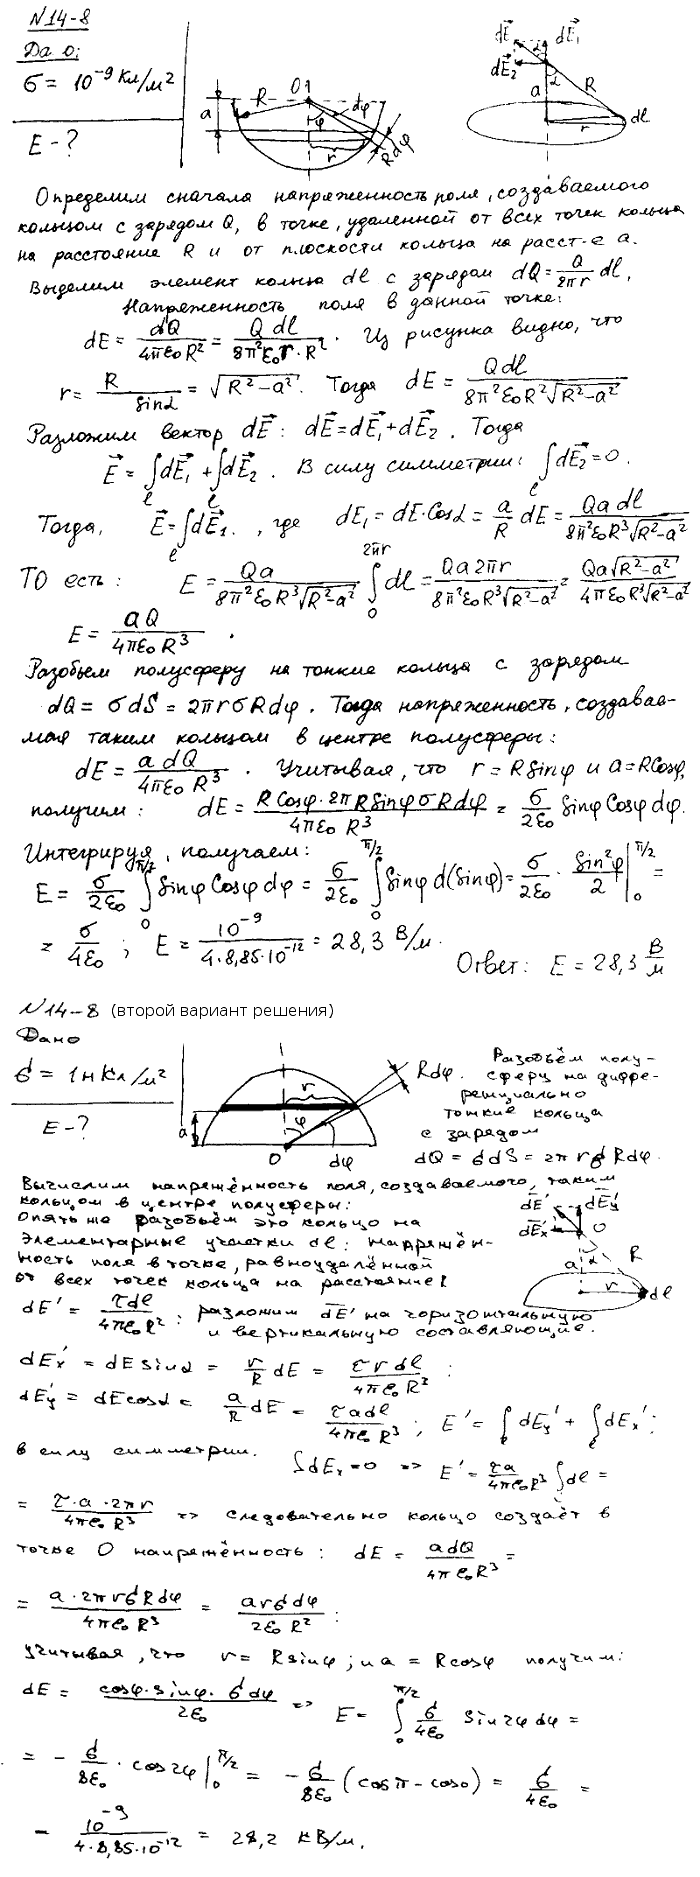 N14-8
Дано:
σ = 10⁻⁹ Кл/м²
E - ?
O1 R a φ dφ r Rdφ
dE⃗ dE⃗₁ dE⃗₂ α a R r dl
Определим сначала напряженность поля, создаваемого
кольцом с зарядом Q, в точке, удаленной от всех точек кольца
на расстояние R и от плоскости кольца на расст-е a.
Выделим элемент кольца dl с зарядом dQ = Q/(2πr) dl,
Напряженность поля в данной точке:
dE = dQ/(4πε₀R²) = Q dl/(8π²ε₀r·R²). Из рисунка видно, что
r = R/sinα = √(R²-a²). Тогда dE = Qdl/(8π²ε₀R²√(R²-a²))
Разложим вектор dE⃗: dE⃗ = dE⃗₁ + dE⃗₂. Тогда
E⃗ = ∫_l dE⃗₁ + ∫_l dE⃗₂. В силу симметрии: ∫_l dE⃗₂ = 0.
Тогда, E⃗ = ∫_l dE⃗₁., где dE₁ = dE·Cosα = a/R dE = Qa dl/(8π²ε₀R³√(R²-a²))
ТО есть: E = Qa/(8π²ε₀R³√(R²-a²)) ∫₀^(2πr) dl = Qa2πr/(8π²ε₀R³√(R²-a²)) = Qa√(R²-a²)/(4πε₀R³√(R²-a²))
E = aQ/(4πε₀R³).
Разобьем полусферу на тонкие кольца с зарядом
dQ = σdS = 2πrσRdφ. Тогда напряженность, создавае-
мая таким кольцом в центре полусферы:
dE = a dQ/(4πε₀R³). Учитывая, что r = R Sinφ и a = R Cosφ,
получим: dE = R Cosφ·2πR Sinφ σ R dφ/(4πε₀R³) = σ/(2ε₀) Sinφ Cosφ dφ.
Интегрируя, получаем:
E = σ/(2ε₀) ∫₀^(π/2) Sinφ Cosφ dφ = σ/(2ε₀) ∫₀^(π/2) Sinφ d(Sinφ) = σ/(2ε₀) · Sin²φ/2 |₀^(π/2) =
= σ/(4ε₀); E = 10⁻⁹/(4·8,85·10⁻¹²) = 28,3 В/м.
Ответ: E = 28,3 В/м
N14-8 (второй вариант решения)
Дано
σ = 1нКл/м²
E - ?
a r φ O dφ Rdφ
Разобьём полу-
сферу на диффе-
ренциально
тонкие кольца
с зарядом
dQ = σdS = 2πrσRdφ.
Вычислим напряжённость поля, создаваемого, таким
кольцом в центре полусферы:
Опять же разобьём это кольцо на
элементарные участки dl: напряжён-
ность поля в точке, равноудалённой
от всех точек кольца на расстояние R
dE' dE'y dE'x O a α R r dl
dE' = τdl/(4πε₀R²): разложим dE' на горизонтальную
и вертикальную составляющие.
dEx' = dE sinα = r/R dE = τrdl/(4πε₀R³):
dEy' = dE cosα = a/R dE = τadl/(4πε₀R³); E' = ∫_l dEy' + ∫_l dEx';
в силу симметрии. ∫dEx = 0 => E' = τa/(4πε₀R³) ∫dl =
= τ·a·2πr/(4πε₀R³) => следовательно кольцо создаёт в
точке O напряжённость: dE = adQ/(4πε₀R³) =
= a·2πrσRdφ/(4πε₀R³) = arσdφ/(2ε₀R²):
учитывая, что r = Rsinφ; и a = Rcosφ получим:
dE = cosφ·sinφ·σdφ/(2ε₀) => E = ∫₀^(π/2) σ/(4ε₀) sin2φdφ =
= - σ/(8ε₀) · cos2φ |₀^(π/2) = - σ/(8ε₀) (cosπ - cos0) = σ/(4ε₀) =
- 10⁻⁹/(4·8,85·10⁻¹²) = 28,2 кВ/м.